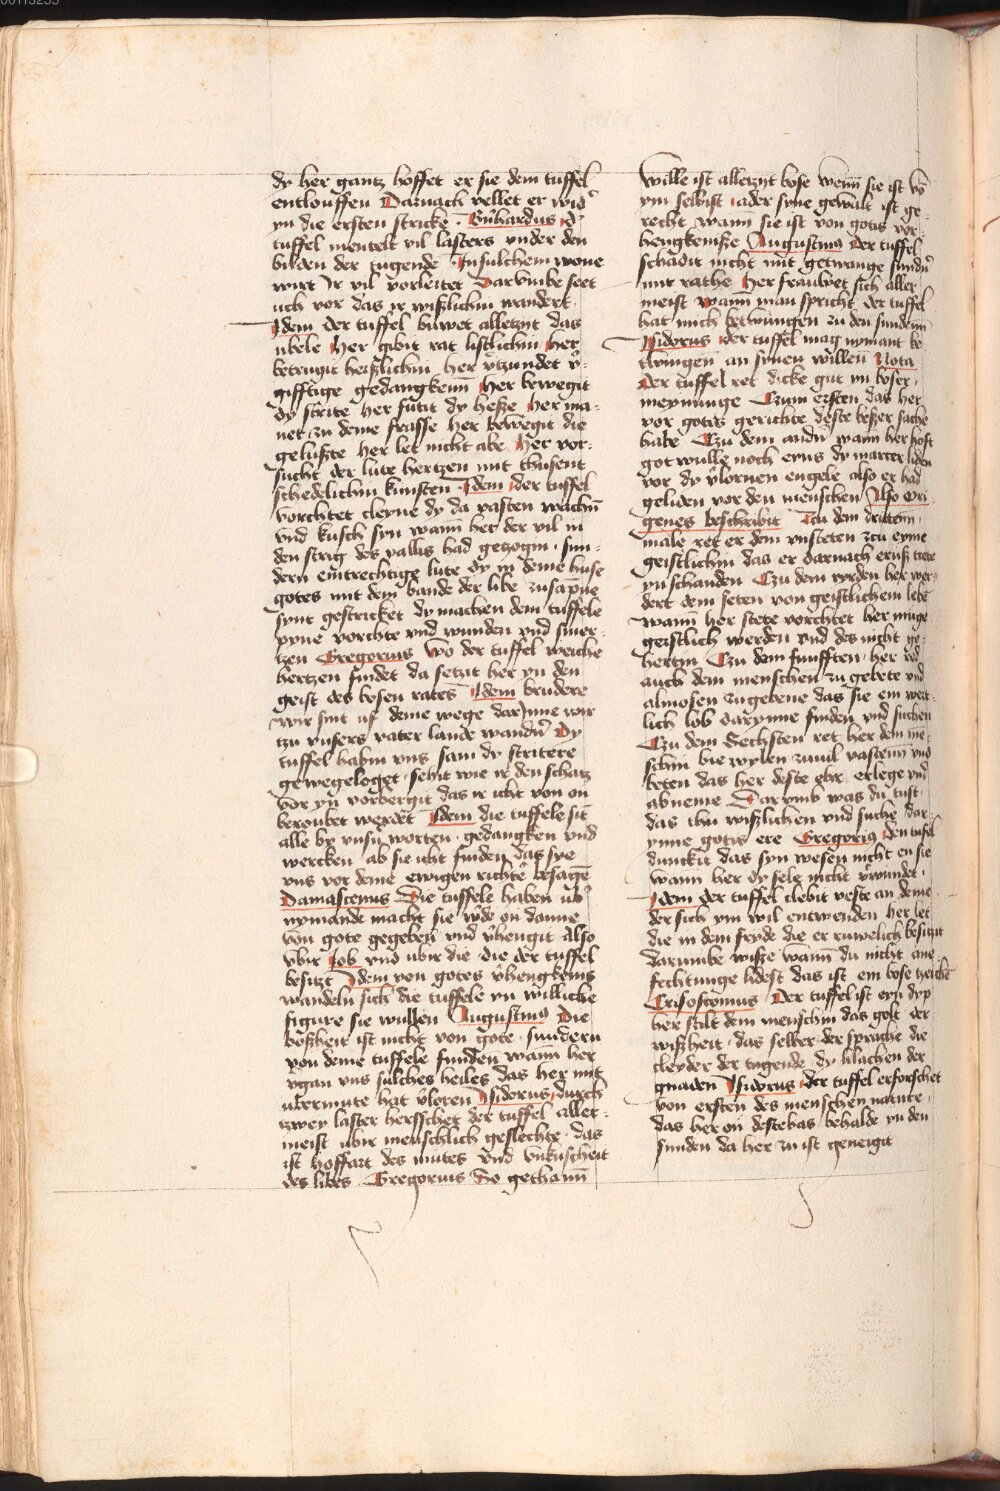 dy her gantz hoffet er sie dem tuffel
entlouffen Darnach vellet er wid᷑
yn die ersten stricke . Bn̄hardus d᷑
tuffel mentelt vil lasters vnder den
bilden der tugende In sulchem wone
wirt Ir vil vorleitet Darvmbe seet
uch vor das ir wißlichin wandert .
Idem Der tuffel buwet alletzyt das
ubele her gibit rat listlichin her
betrugit heißlichin her vtzundet v᷑
gifftige gedangkenn her bewegit
dy strite her furit dy heße her ma-
net zu deme frasse her bewegit die
geluszte her let nicht abe her vor-
sucht der lute hertzen mit thusent
schedelichin kunsten Idem der tuffel
vorchtet cleyne dy da vasten wachin̄
vnd kusch syn wann her der vil in
den strig des vallis had getzogin . sun-
dern eintrechtige lute dy in deme huse
gotes mit dem bande der libe zusap̄ne
synt gestricket dy machen dem tuffele
pyne vorchte vnd wunden vnd smer-
tzen Gregorius Wo der tuffel weiche
hertzen findet da setzit her yn den
geist des bosen rates Idem brudere
wir sint uf deme wege dar Inne wir
tzu vnsers vater lande wandn̄ Dy
tuffel habin vns sam dy stritere
gewegeloget . sehit wie ir den schatz
vor yn vorbergit das ir icht von on
beroubet werdet Idem die tuffele sit̄
alle by vnsn̄ worten . gedangken vnd
wercken ab sie icht finden das sye
vns vor deme ewigen richte᷑ besagē
Damascenus Die tuffele haben ub᷑
nymande macht sie w᷑de on danne
von gote gegeben vnd v᷑hengit also
vbir Job vnd ubir die die der tuffel
besitzt Idem von gotes v᷑hengkenis
wandeln sich die tuffele yn williche
figure sie wullen Augustinus Die
boßheit ist nicht von gote . sundern
von deme tuffele funden wann her
v᷑gan vns sulches heiles das her mit
ubermute hat v᷑loren Isidorus durch
tzwey laster hersschet der tuffel aller-
meist ubir menschlich geslechte . das
ist hoffart des mutes vnd vnkuscheit
des libes Gregorius So gethann
wille ist alletzyt bose wenn sie ist vō
ym selbist . ader syne gewalt ist ge-
recht wann sie ist von gotis vor-
hengkeniße Augustinus Der tuffel
schadit nicht mit getwange sundn̄
mit rathe Her frauwet sich aller
meist wann man spricht der tuffel
hat mich betwungen zu den sundenn
Isidorus der tuffel mag nymant be-
twingen an synen willen Nota
Der tuffel ret dicke gut in boser .
meynunge Czum ersten das her
vor gotis gerichte deste beßer sache
habe Czu dem andn̄ wann her hoft
got wulle noch eyns dy marter liden
vor dy v᷑lornen engele also er had
geliden vor den menschen Also Ori-
genes beschribit Tzu dem drittenn
male ret er dem vnsteten tzu eyme
geistlichin das er darnach erusz trete
yn schanden Czu dem vyrden her wer-
dert dem steten von geistlichem lebē
wann her stete vorchtet her muge
geistlich werden vnd des nicht ge-
hertin Czu dem funfften . her red
auch dem menschen zu gebete vnd
almosen zugebene das sie ein wert-
lich lob darynne finden vnd suchen
Czu dem Sechsten ret her dem mē-
schin bie wylen zuuil vastenn vnd
beten das her deste ehr erlege vnd
abneme Darvmb was du tust .
das thu wißlichen vnd suche dar-
ynne gotis ere Gregorius den tufel
dunckit das syn wesen nicht en sie
wann her dy sele nicht v᷑wundet .
Idem der tuffel clebit veste an deme
der sich ym wil entwenden her let
die in dem fryde die er ruwelich besitzit
darumbe wiße wann du nicht ane-
fechtunge lidest das ist ein bose tzeichē
Crisostomus Der tuffel ist eyn dyp
her stilt dem menschin das golt der
wißheit . das selber der sprache die
cleyder der tugende dy lilachen der
gnaden Isidorus der tuffel erforschet
von ersten des menschen nature .
das her on destebas behalde yn den
sunden da her zu ist geneigit